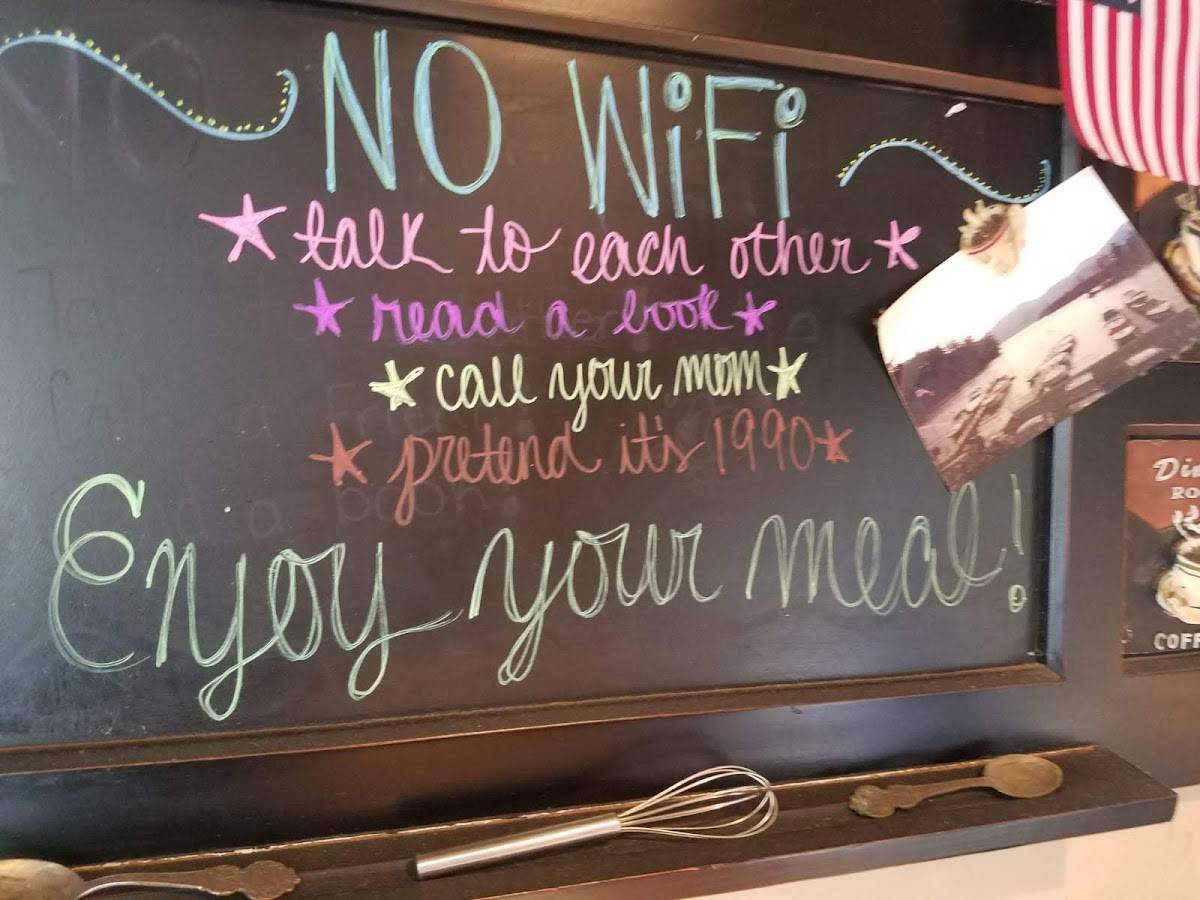 NO WiFi
talk to each other
read a book
call your mom
pretend it's 1990
Enjoy your meal!